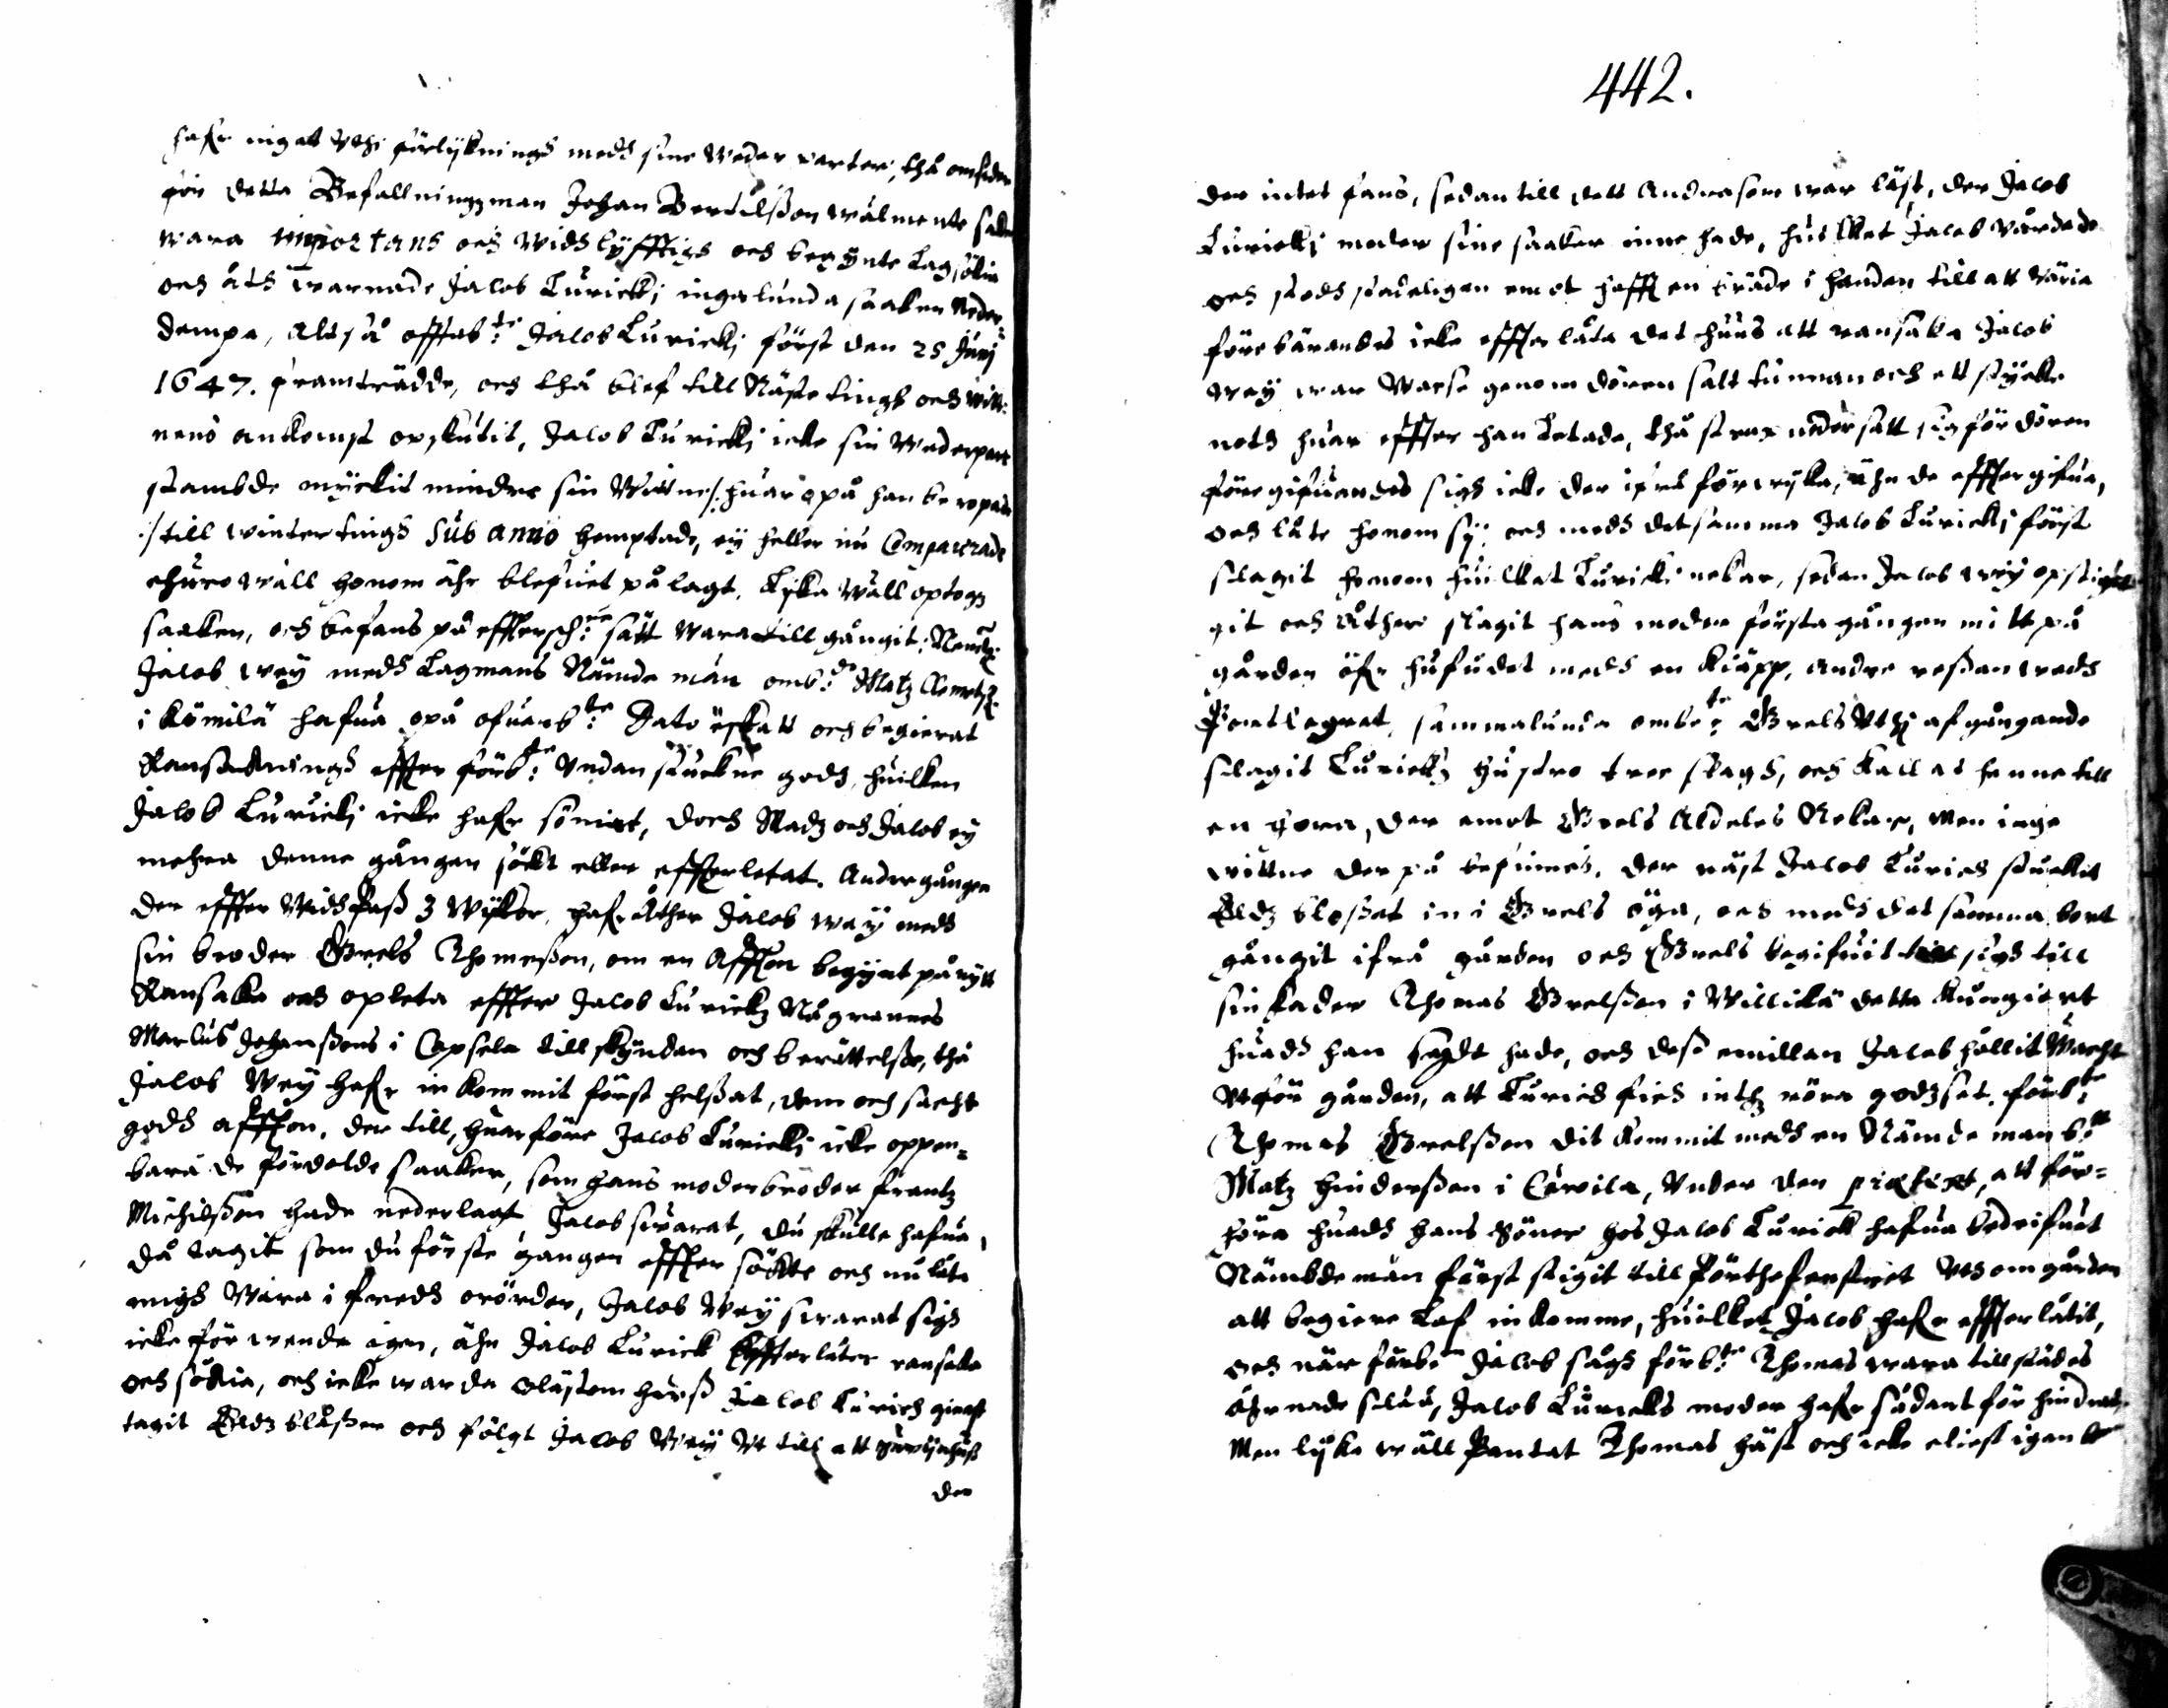 hafr ingått Vthi förlijkningh medh sine Weder parter, thå omsider
för detta Befallningzman Johan Bertilßon wälmente saken
wara importans och widhlyfftigh och begynte Lagsökia
och åth warnade Jacob Curickj ingalunda saaken Neder-
dempa, altså offtab:te Jacob Curickj först den 25 Junij
1647. framträdde, och thå blef till Näste tingh och Witt-
nens ankompst opskutit, Jacob Curickj icke sin Wederpart
stambde myckit mindre sin Wittne /: huar opå han beropade
:/ till winter tingh sub anno hemptade, ey heller nu Comparerade
ehuro wäll honom ähr blefuet pålagt. Lyka wäll optogz
saaken, och befans på effterschr:ne sätt wara till gångit: Nembl:
Jacob wey medh Lagmans Nämde män omb:de Matz Clemetz:
i Kömilä hafua opå ofuanb:te Dato äskatt och begierat
Ransakningh effter förb:te Vndan stuckne godh, huilken
Jacob Curickj icke hafr förment, doch Madz och Jacob ey
mehra denne gången sökt eller effterletat. Andre gången
der effter widh Paß 3 Wijkor, hafr åther Jacob wey medh
sin broder Grels Thomeßon, om en Affton begynt på nytt
Ransaka och opleta effter Jacob Curickz Någrannes
Marcus Johanßons i Capsela tillskyndan och berättelße, thå
Jacob Wey hafr in kommit först helßat, dem och sacht
godh affton, der till, huarföre Jacob Curickj icke oppen-
bara de fördolde saaker, som hans moderbroder frantz
Michilßon hade nederlagt Jacob swarat, du skulle hafua
då tagit som du förste gangen effter sökte och nu låta
migh wara i fredh orörder, Jacob Wey swarat sigh
icke för wende igen, ähn Jacob Curick Effterlåter ransaka
och sökia, och icke war da olästom huuß Jacob Curich
tagit Eldz bloßer och fölgt Jacob Wey Vt till ett
der
442.
der intet fans, sedan till dett Andra som war läst, der Jacob
Curickj moder sine saaker inne hade, huilket Jacob wårdade
och stodh stadeligen emot hafft en träde i handen till att wäria
förebärandes icke effterlåta det huus att ransaka Jacob
wey war warse genom dören salt tunnan och ett stycke
noth huar effter han Letade, thå strax nider satt sig för dören
föregifuandes sigh icke der ifrå förwijka, ähn de effter gifua,
och låte honom sij och medh detsamma Jacob Curickj först
slagit honom huilket Curickj nekar, sedan Jacob wey opstigit
git och Åther slagit hans moder första gången mitt på
gården öfr hufudet medh en Kiäpp, andre reßan wedh
sammalunda ombe:te Grels Vthj afgångande
slagit Curickz hustro tree slagh, och Kallat henne till
en hora, der emot Grels Aldeles Nekar, Men inge
wittne der på befinnes. der näst Jacob Curich stuckit
Eldz bloßet in i Grels öga, och medh det samma bort
gångit ifrå gården och Grels begifuit sigh till
sin fader Thomas Grelßon i Willikä detta Kungiort
huadh han hade, och deß emillan Jacob hållit Wacht
Vtför gården, att Curich fick intz röra godzset. förb:te
Thomas Grelßon dit Kommit medh en Nämde man b:tt
Matz Hinderßon i Cervila, Vnder den pretext, att för-
höra huadh hans Söner hos Jacob Curick hafua bedrifuet
Nämbdemän först stigit till Pörthefenstret Vth om gården
att begiere Lof inkomme, huilket Jacob hafr effterlåtit,
och när förbe:te Jacob sågh förb:te Thomas wara tillstädes
ährnade slåå, Jacob Curicks moder hafr sådant för hindrat,
Men lyka wäll Pantat Thomas häst och icke eliest igen